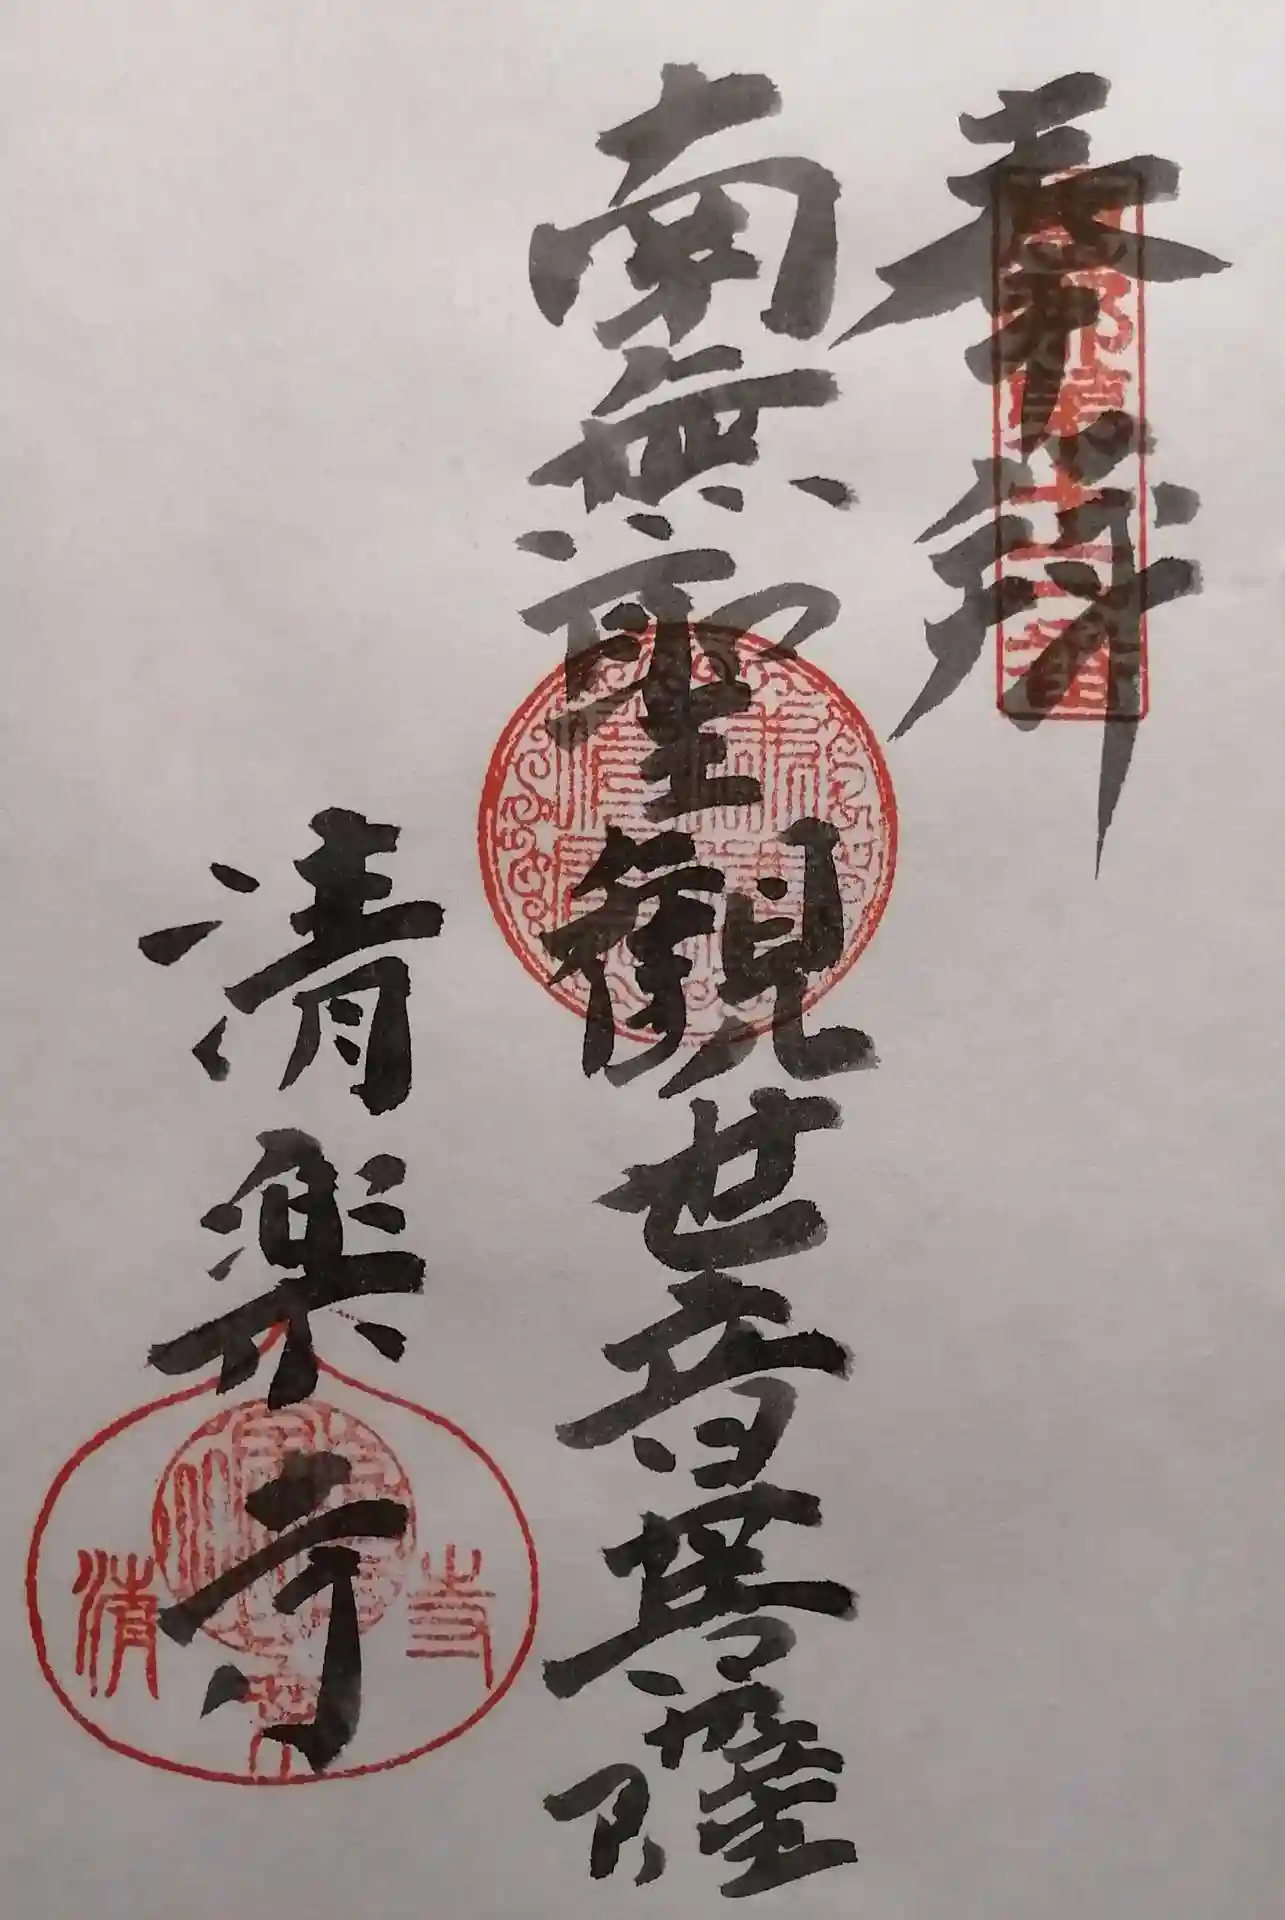 奉拝
南無聖観世音菩薩
清楽寺
清楽寺